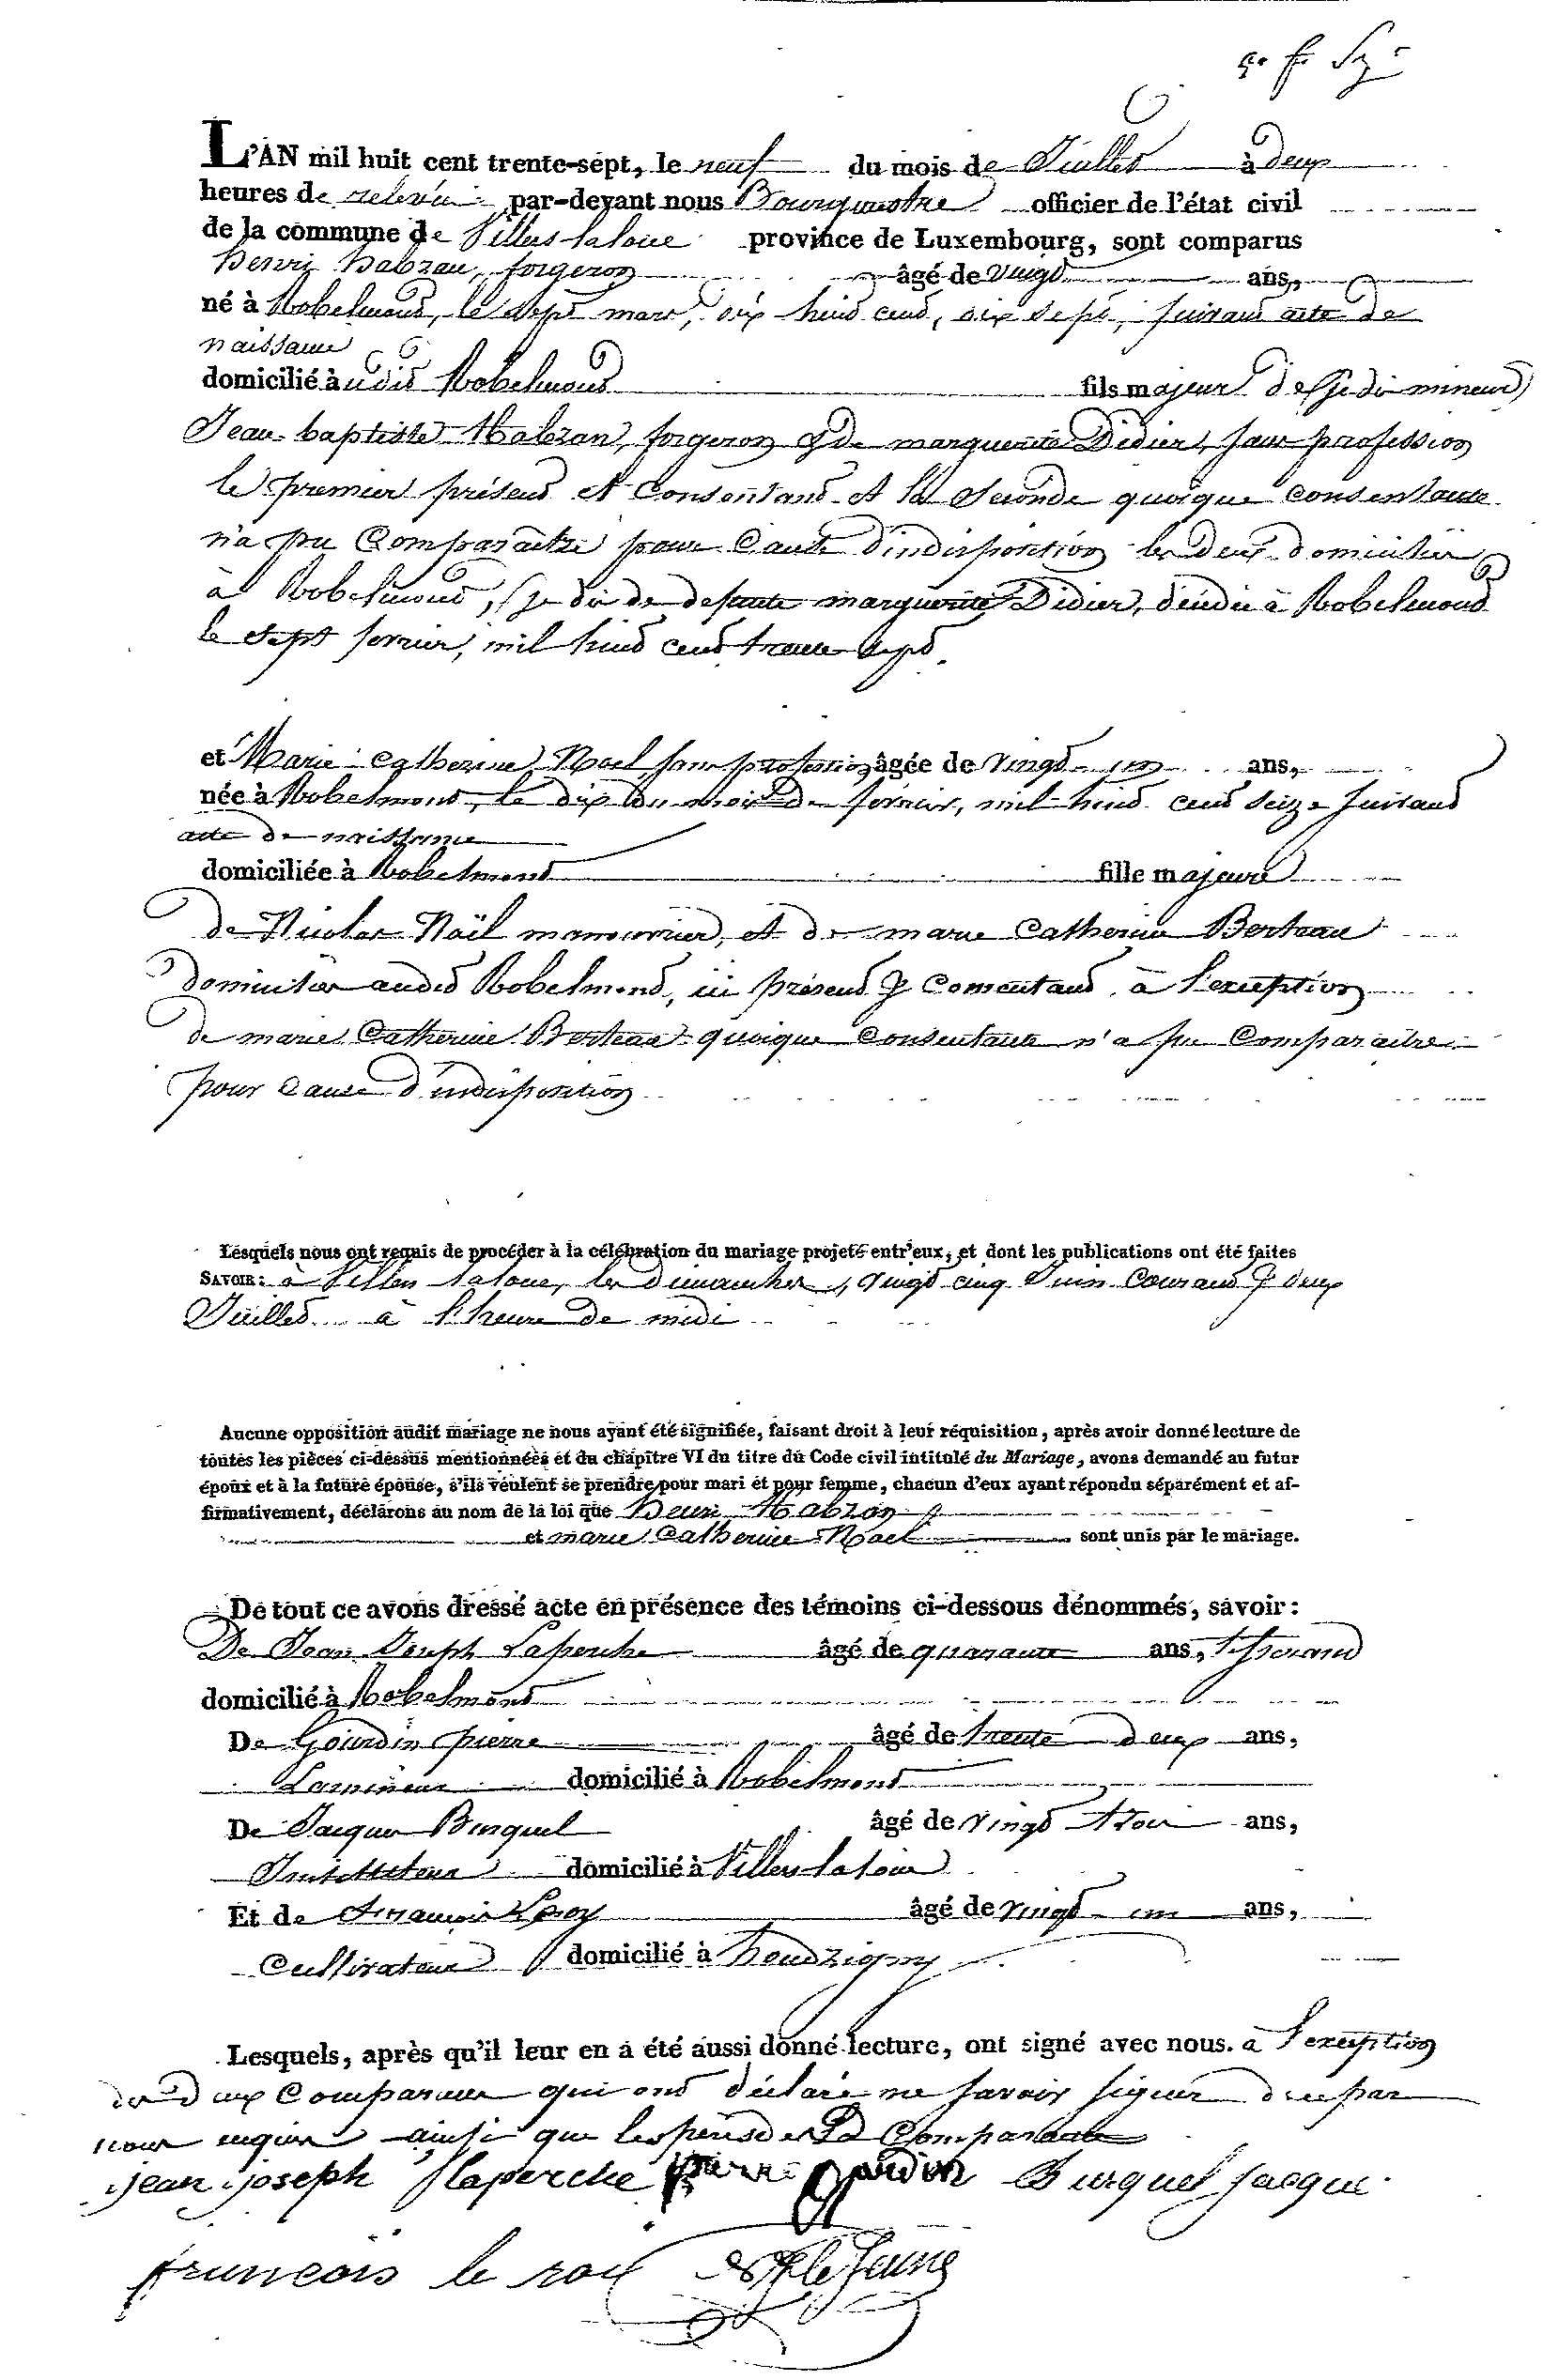 L'AN mil huit cent trente-sept, le neuf du mois de Juillet à deux
heures de relevée par-devant nous Bourgmestre officier de l'état civil
de la commune de Villers laloue province de Luxembourg, sont comparus
henri habran, forgeron âgé de vingt ans,
né à Robelmont, le sept mars, dix huit cent, dix sept, suivant acte de
naissance
domicilié à udit Robelmont fils majeur de (je dis mineur)
Jean baptiste Habran, forgeron & de marguerite Didier, sans profession
le premier présent et Consentant et la seconde quoique consentante
n'a pu Comparaitre pour Cause d'indisposition les deux domiciliés
à Robelmont, (je dis de defunte marguerite Didier, décédée à Robelmont
le sept fevrier, mil huit cent trente sept.
et Marie Catherine Noel sans profession âgée de vingt un ans,
née à Robelmont, le dix du mois de fevrier, mil huit cent seize suivant
acte de naissance
domiciliée à Robelmont fille majeure
de Nicolas Noël manouvrier, et de marie Catherine Berteau
domiciliés audit Robelmont, ici présent & Consentant, à l'exception
de marie Catherine Berteau quoique Consentante n'a pu Comparaitre
pour Cause d'indisposition
Lesquels nous ont requis de procéder à la célébration du mariage projeté entr'eux, et dont les publications ont été faites
SAVOIR: à Villers laloue, les dimanches, vingt cinq Juin Courant & deux
Juillet à l'heure de midi
Aucune opposition audit mariage ne nous ayant été signifiée, faisant droit à leur réquisition, après avoir donné lecture de
toutes les pièces ci-dessus mentionnées et du chapitre VI du titre du Code civil intitulé du Mariage, avons demandé au futur
époux et à la future épouse, s'ils veulent se prendre pour mari et pour femme, chacun d'eux ayant répondu séparément et af-
firmativement, déclarons au nom de la loi que henri Habran
et marie Catherine Noel sont unis par le mariage.
De tout ce avons dressé acte en présence des témoins ci-dessous dénommés, savoir:
De Jean Joseph Laperche âgé de quarante ans, tisserand
domicilié à Robelmont
De Gourdin pierre âgé de trente deux ans,
Lamineur domicilié à Robelmont
De Jacques Burquel âgé de vingt trois ans,
Instituteur domicilié à Villers laloue
Et de francois Leroy âgé de vingt un ans,
Cultivateur domicilié à houdrigny
Lesquels, après qu'il leur en a été aussi donné lecture, ont signé avec nous. à l'exception
des deux Comparants qui ont déclaré ne savoir signer de ce par
nous enquis ainsi que les pères des Comparants
jean joseph laperche pierre gourdin Burquel jacque
francois le roi Lejeune